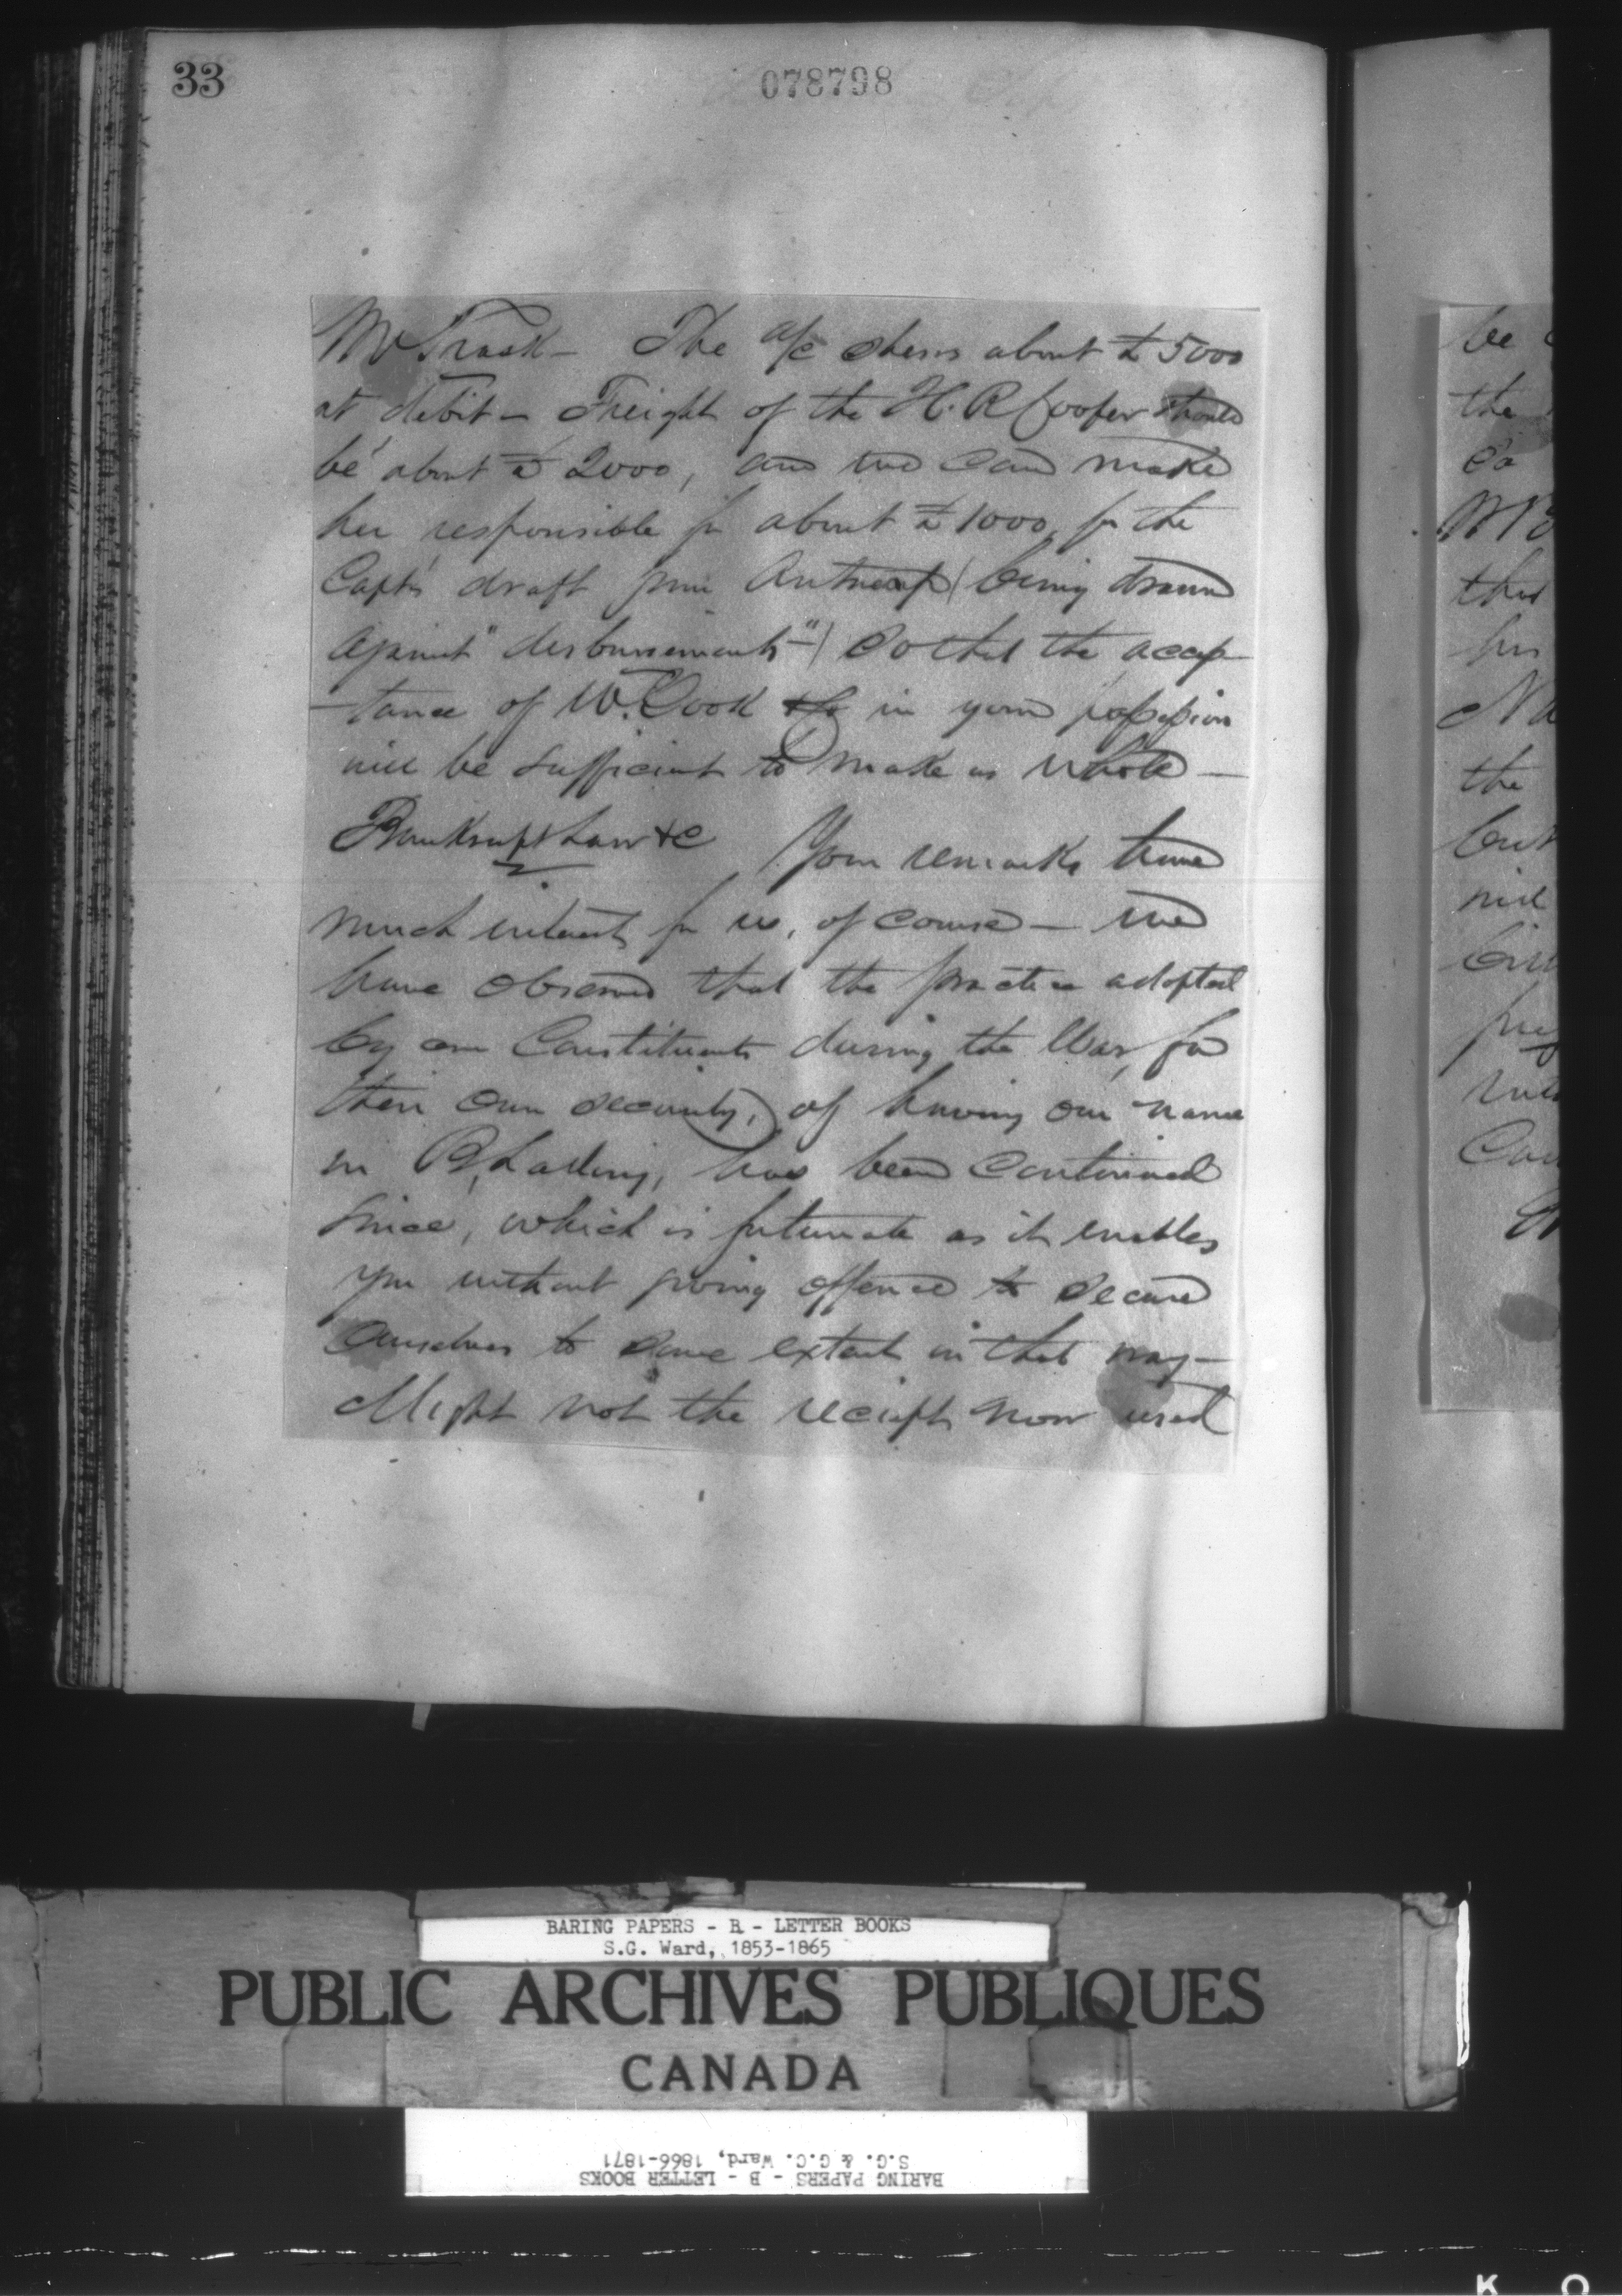 33
078798
Mr Trask — The a/c shews about £5000
at debit — Freight of the H. R Cooper should
be about £2000, and we can make
her responsible for about £1000, for the
Capt's draft from Antwerp (being drawn
against "disbursements") so that the accep-
tance of W. Cook & Co in your possession
will be sufficient to make us whole —
Bankrupt Law &c Your remarks have
much interest for us, of course — we
have observed that the practice adopted
by our Constituents during the War, for
their own security, of having our name
in B/Lading, has been continued
since, which is fortunate as it enables
you without giving offence to secure
ourselves to some extent in that way —
Might not the reciept now used
be
the
Co
that
his
the
but
will
BARING PAPERS - B - LETTER BOOKS
S.G. Ward, 1853-1865
PUBLIC ARCHIVES PUBLIQUES
CANADA
BARING PAPERS - B - LETTER BOOKS
S.G. & G.C. Ward, 1866-1871
K O